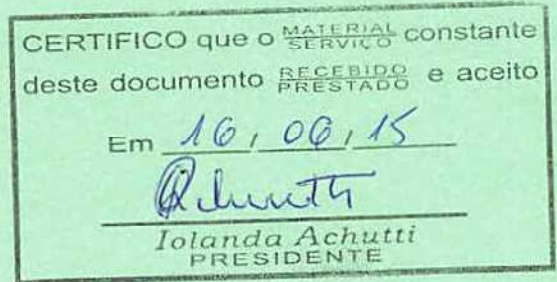 CERTIFICO que o MATERIAL SERVIÇO constante
deste documento RECEBIDO PRESTADO e aceito
Em 16, 06, 15
Iolanda Achutti
PRESIDENTE